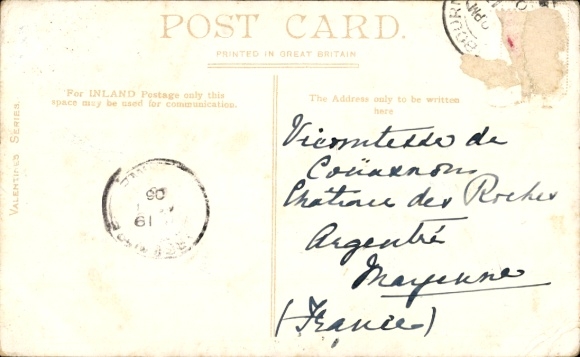 POST CARD.
PRINTED IN GREAT BRITAIN
For INLAND Postage only this
space may be used for communication.
The Address only to be written
here
VALENTINES SERIES.
Vicomtesse de
Couasnon
Château des Roches
Argentré
Mayenne
(France)
19
06